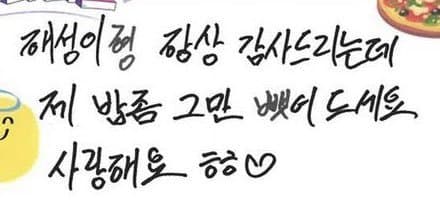 해성이형 항상 감사드리는데
제 밥좀 그만 뺏어 드세요
사랑해요 ㅎㅎ♡